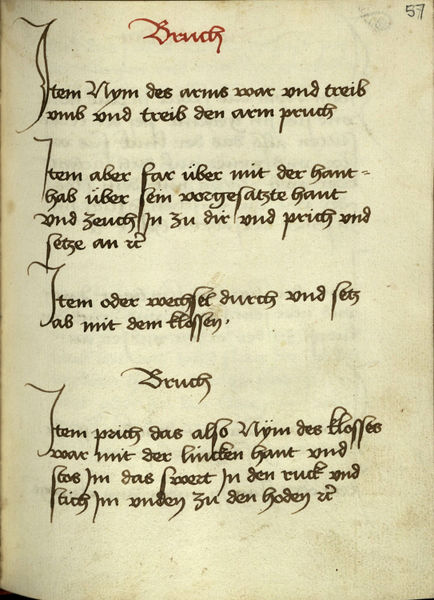 57
Bruch
Item Nym des arms war vnd treib
vmb vnd treib den arm pruch
Item aber far über mit der hant=
hab über sein vorgesatzte hant
vnd zeuch In zu dir vnd prich vnd
setze an rc
Item oder wechsel durch vnd setz
ab mit dem klossen.
Bruch
Item prich das also Nÿm des klosses
war mit der lincken hant vnd
stos Im das swert In den ruck vnd
stich Im vnden zu den hoden rc